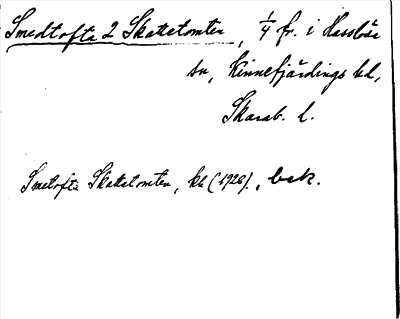 Smedtofta 2 Skattetomten, 1/4 fr. i Hasslösa
sn, Kinnefjärdings hd,
Skarab. l.
Smetofta Skattetomten, kb (1926), bek.